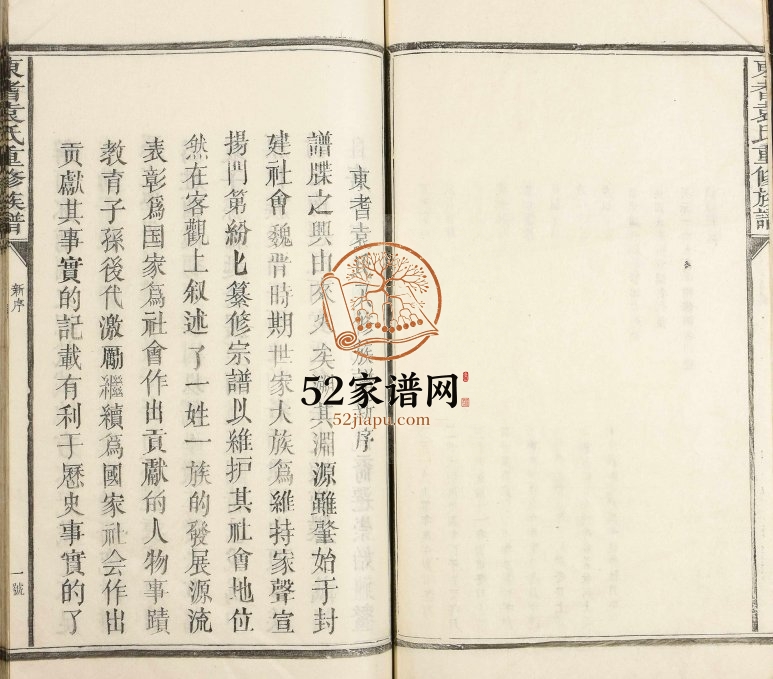 東耆袁氏重修族譜
東耆袁 修族 序
譜牒之興由來久矣 其淵源雖肇始于封
建社會魏晋時期世家大族爲維持家聲宣
揚門第紛匕纂修宗譜以維护其社會地位
然在客觀上叙述了一姓一族的發展源流
表彰爲国家爲社會作出貢獻的人物事蹟
教育子孫後代激勵繼續爲國家社会作出
貢獻其事實的記載有利于歷史事實的了
東耆袁氏重修族譜
新序
一號
52家谱网
52jiapu.com